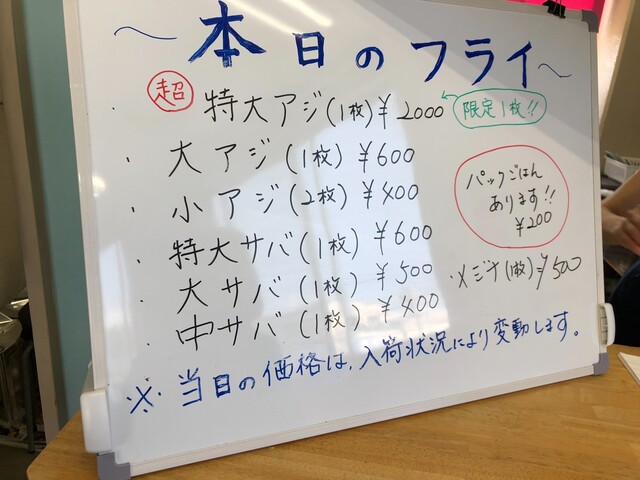 ～本日のフライ～
・超特大アジ(1枚)¥2000
限定1枚!!
・大アジ(1枚)¥600
・小アジ(2枚)¥400
・特大サバ(1枚)¥600
・大サバ(1枚)¥500
・中サバ(1枚)¥400
パックごはん
あります!!
¥200
・メジナ(1枚)¥500
※当日の価格は、入荷状況により変動します。